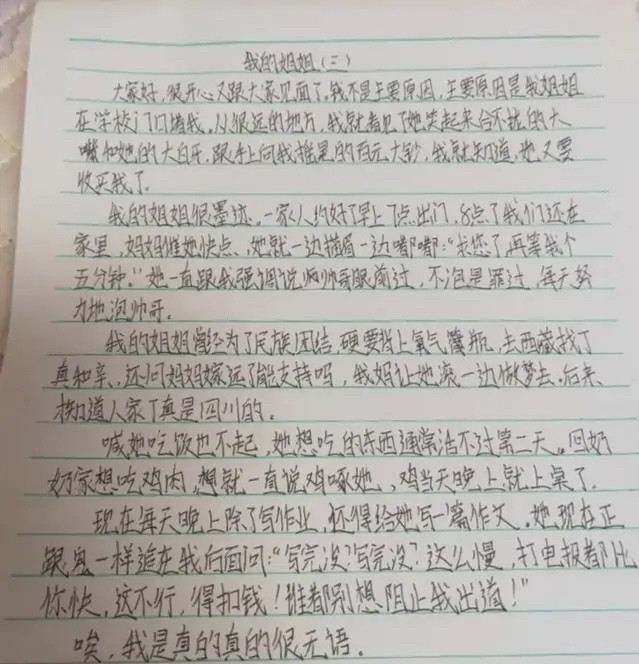 我的姐姐(二)
大家好,很开心又跟大家见面了,我不是主要原因,主要原因是我姐姐
在学校门口堵我,从很远的地方,我就看见了她笑起来合不拢的大
嘴和她的大白牙,跟手上向我摇晃的百元大钞,我就知道,她又要
收买我了。
我的姐姐很墨迹,一家人约好了早上7点出门,8点了我们还在
家里,妈妈催她快点、她就一边描眉一边嘟嘟:“求您了,再等我个
五分钟。”她一直跟我强调说帅帅哥眼前过,不泡是罪过,每天努
力地泡帅哥。
我的姐姐曾经为了民族团结,硬要背上氧气罐瓶,去西藏找丁
真和亲,还问妈妈嫁远了能支持吗,我妈让她滚一边做梦去。后来
才知道人家丁真是四川的。
喊她吃饭也不起,她想吃的东西通常活不过第二天。回奶
奶家想吃鸡肉,想就一直说鸡啄她、鸡当天晚上就上桌了。
现在每天晚上除了写作业,还得给她写一篇作文。她现在正
跟鬼一样追在我后面问:“写完没?写完没?这么慢,打电报都比
你快,这不行,得扣钱!谁都别想阻止我出道!”
唉,我是真的真的很无语。